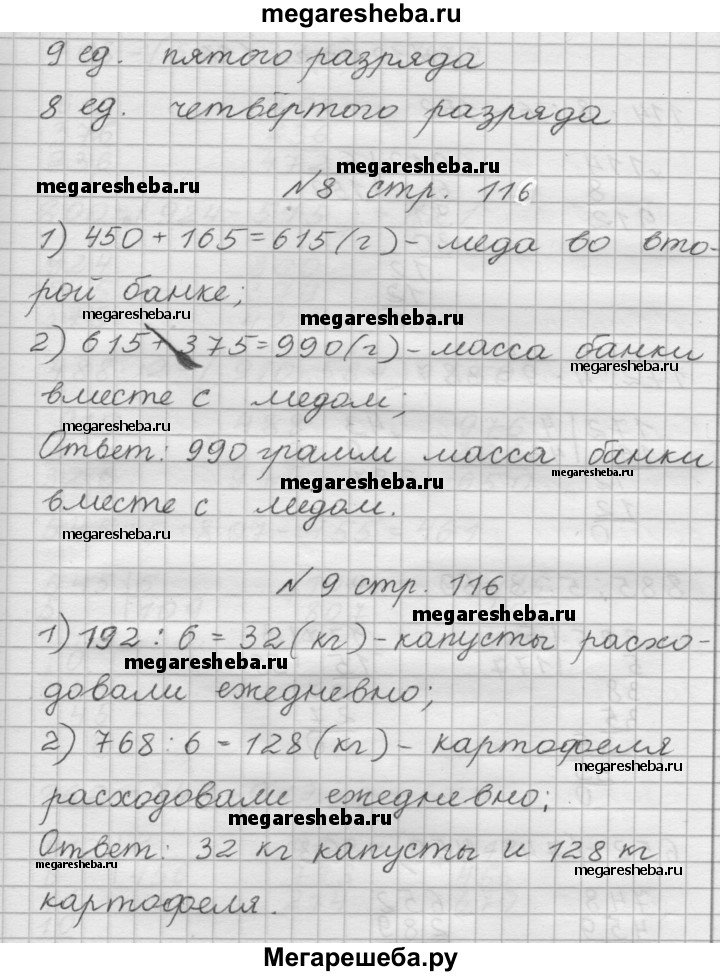 megaresheba.ru
9 ед. пятого разряда
8 ед. четвёртого разряда
megaresheba.ru
megaresheba.ru №8 стр. 116
1) 450 + 165 = 615 (г) - меда во вто-
рой банке;
megaresheba.ru
megaresheba.ru
2) 615 + 375 = 990 (г) - масса банки
megaresheba.ru
вместе с медом;
megaresheba.ru
Ответ: 990 грамм масса банки
megaresheba.ru
megaresheba.ru
вместе с медом.
megaresheba.ru
№ 9 стр. 116
megaresheba.ru
1) 192 : 6 = 32 (кг) - капусты расхо-
megaresheba.ru
довали ежедневно;
2) 768 : 6 = 128 (кг) - картофеля
megaresheba.ru
расходовали ежедневно;
megaresheba.ru
Ответ: 32 кг капусты и 128 кг
megaresheba.ru
megaresheba.ru
картофеля.
Мегарешеба.ру